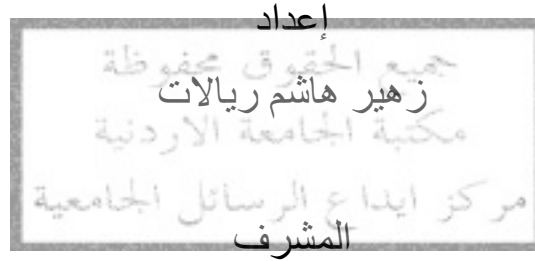 إعداد
جميع الحقوق محفوظة
زهير هاشم ريالات
مكتبة الجامعة الاردنية
مركز ايداع الرسائل الجامعية
المشرف